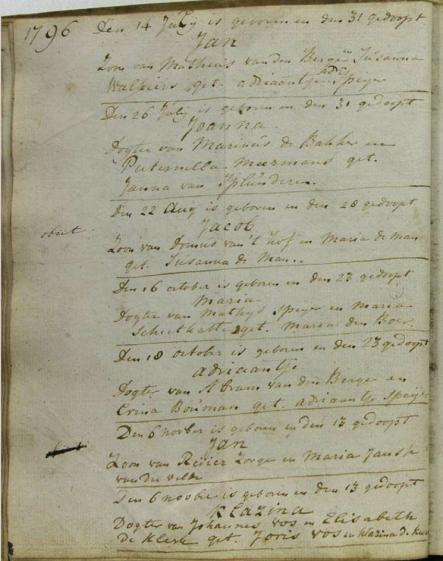 1796
Den 14 July is geboren en den 31 gedoopt
Jan
Zoon van Matheus van den Berge en Susanna
Walhiers get. adriaantje Speyer
Den 26 July is geboren en den 31 gedoopt
Joanna
Dogter van Marinus de Bakker en
Pieternella meermans get.
Janna van Splunderen
Den 22 Aug is geboren en den 28 gedoopt
Jacob
obiit
Zoon van Domus van 't hof en Maria de Man
get. Susanna de Man
Den 16 october is geboren en den 23 gedoopt
Maria
Dogter van Mathys Speyer en Maria
get. Maria den Boer
Den 18 october is geboren en den 23 gedoopt
adriaantje
Dogter van Abram van den Berge en
Crina Bouman get. adriaantje Speyer
Den 6 novber is geboren en den 13 gedoopt
Jan
Zoon van Zorge en Maria Jansse
van der velde
Den 6 novber is geboren en den 13 gedoopt
Klazina
Dogter van Johannes vos en Elisabeth
de Klerk get. Joris vos en Klazina de